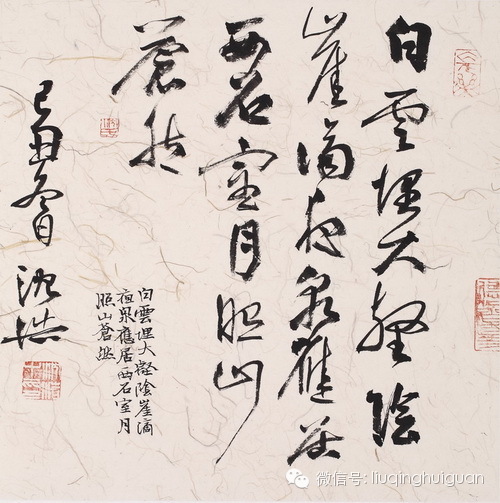 白雲埋大壑陰
崖滴夜泉應居
西石室月照山
蒼然
白雲埋大壑陰崖滴
夜泉應居西石室月
照山蒼然
己丑冬日 沈浩
微信号: liuqinghuiguan